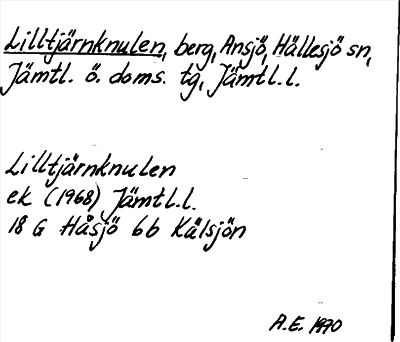 Lilltjärnknulen, berg, Ansjö, Hällesjö sn,
Jämtl. ö. doms. tg, Jämtl.l.
Lilltjärnknulen
ek (1968) Jämtl.l.
18 G Håsjö 6b Kälsjön
A.E. 1970